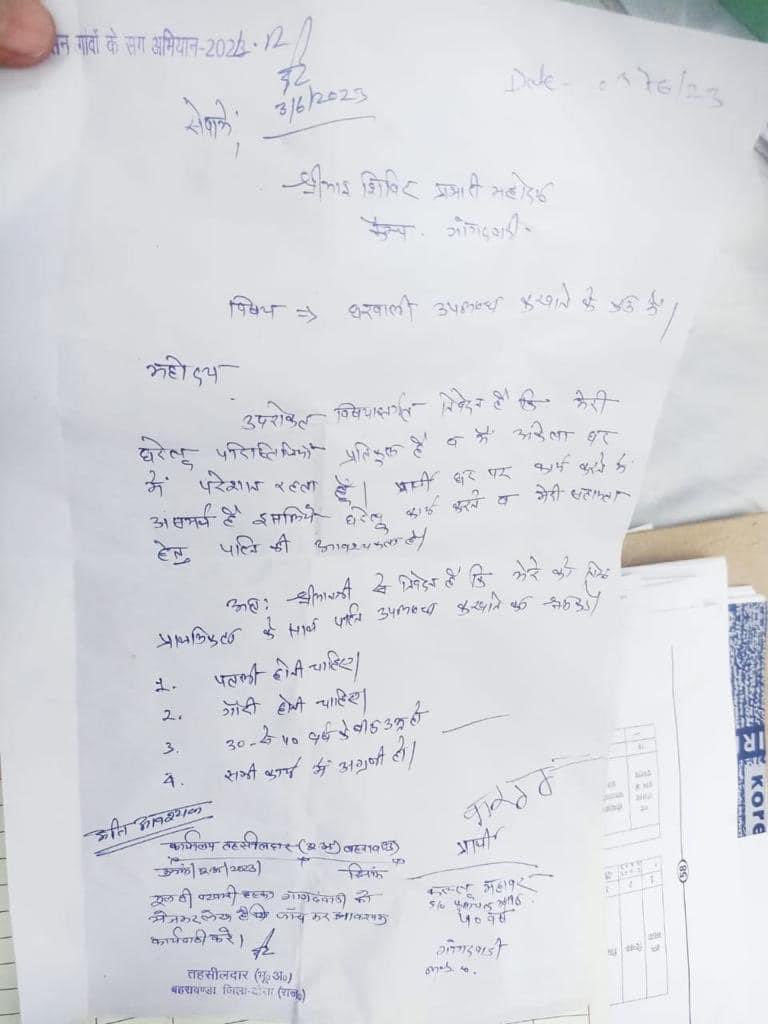 गांवों के संग अभियान-2023
3/6/2023
Date - 03/6/23
सेवामें,
श्रीमान शिविर प्रभारी महोदय
कैम्प - गांगदवाडी
विषय => घरवाली उपलब्ध करवाने के क्रम में।
महोदय
उपरोक्त विषयान्तर्गत निवेदन है कि मेरी
घरेलू परिस्थितियों प्रतिकूल है व मैं अकेला घर
में परेशान रहता हूँ। प्रार्थी घर पर कार्य करने में
असमर्थ है इसलिये घरेलू कार्य करने व मेरी सहायता
हेतु पत्नि की आवश्यकता है।
अतः श्रीमानजी से निवेदन है कि मेरे को निम्न
प्राथमिकता के साथ पत्नि उपलब्ध करवाने का
1. पतली होनी चाहिए।
2. गोरी होनी चाहिए।
3. 30 से 40 वर्ष के बीच उम्र हो
4. सभी कार्य में अग्रणी हो।
अति आवश्यक
प्रार्थी
कार्यालय तहसीलदार (भू.अ.) बहरावण्डा
2023 दिनांक
कल्लू महावर
40 वर्ष
गांगदवाडी
मूल ही पटवारी हल्का गांगदवाडी को
भेजकर लेख है कि जाँच कर आवश्यक
कार्यवाही करे।
तहसीलदार (भू०अ०)
बहरावण्डा जिला-दौसा (राज०)
KORE
(58)